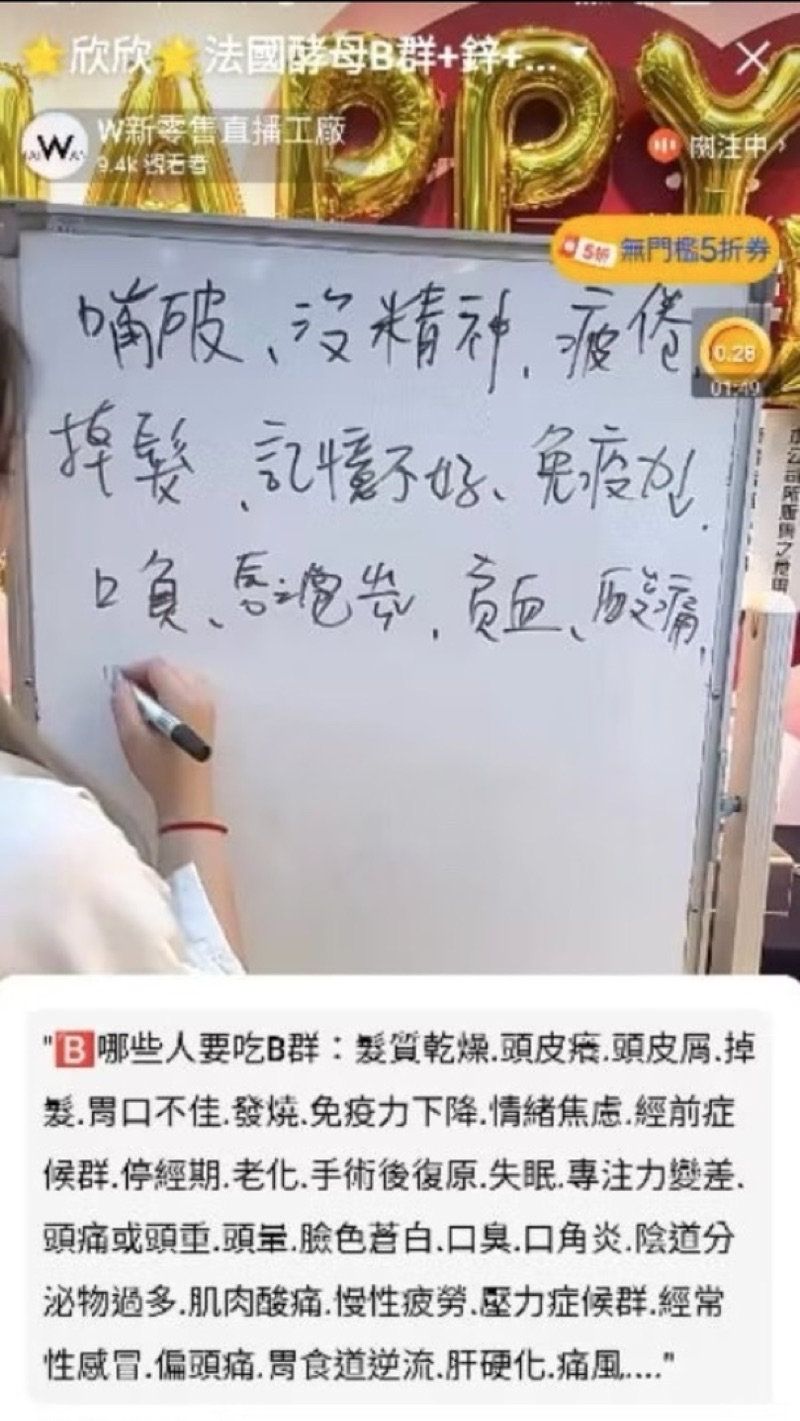 ⭐欣欣⭐法國酵母B群+鋅+...
W
W新零售直播工廠
9.4k 觀看者
關注中
5折 無門檻5折券
0.28
01:49
嘴破、沒精神、疲倦,
掉髮、記憶不好、免疫力↓,
貧血、酸痛,
"🅱哪些人要吃B群：髮質乾燥.頭皮癢.頭皮屑.掉
髮.胃口不佳.發燒.免疫力下降.情緒焦慮.經前症
候群.停經期.老化.手術後復原.失眠.專注力變差.
頭痛或頭重.頭暈.臉色蒼白.口臭.口角炎.陰道分
泌物過多.肌肉酸痛.慢性疲勞.壓力症候群.經常
性感冒.偏頭痛.胃食道逆流.肝硬化.痛風...."